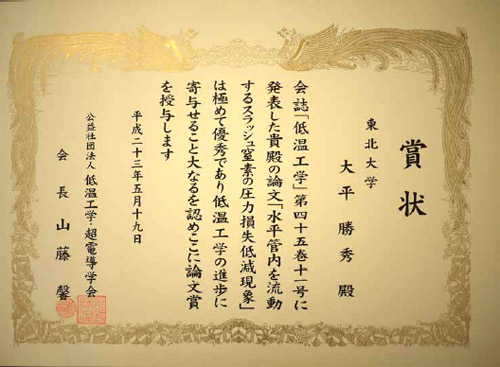 賞状
東北大学
大平勝秀殿
会誌「低温工学」第四十五巻十一号に
発表した貴殿の論文「水平管内を流動
するスラッシュ窒素の圧力損失低減現象」
は極めて優秀であり低温工学の進歩に
寄与せること大なるを認めここに論文賞
を授与します
平成二十三年五月十九日
公益社団法人 低温工学・超電導学会
会長 山藤馨